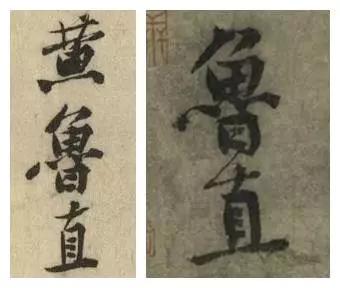 黄魯直
魯直